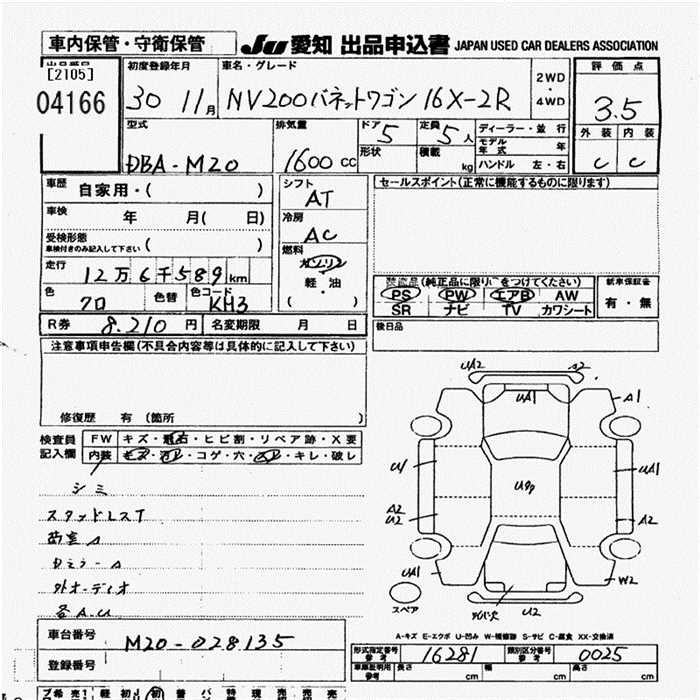 車内保管・守衛保管
JU 愛知 出品申込書 JAPAN USED CAR DEALERS ASSOCIATION
出品番号
[2105]
04166
初度登録年月
30 11月
車名・グレード
NV200バネットワゴン 16X-2R
2WD
・
4WD
評価点
3.5
外装 内装
C C
型式
DBA-M20
排気量
1600 CC
ドア 5
形状
定員 5人
積載 kg
ディーラー・並行
モデル年式 年
ハンドル 左・右
車歴 自家用・( )
車検 年 月( 日)
受検形態
車検付きのみ記入して下さい ( )
走行
12万6千589km
色 クロ 色替 色コード KH3
R券 8.210円 名変期限 月 日
シフト
AT
冷房
AC
燃料
ガソリン
軽・油
( )
セールスポイント(正常に機能するものに限ります)
装備品(純正品に限り○をつけてください)
PS PW エアB AW
SR ナビ TV カワシート
新車保証書
有・無
後日品
注意事項申告欄(不具合内容等は具体的に記入して下さい)
修復歴 有 (箇所 )
検査員
記入欄
FW キズ・飛石・ヒビ割・リペア跡・X要
内装 キズ・コゲ・穴・キレ・破レ
シミ
スタッドレスT
外オーディオ
各A.U
車台番号 M20-028135
登録番号
UA2
UA1
A1
U1
UA1
A2
U2
A2
UA1
W2
U2
スペア
A-キズ E-エクボ U-凹み W-補修跡 S-サビ C-腐食 XX-交換済
形式指定番号
参考 16281
類別区分番号
参考 0025
車庫証明用
参考 長さ cm 幅 cm 高さ cm